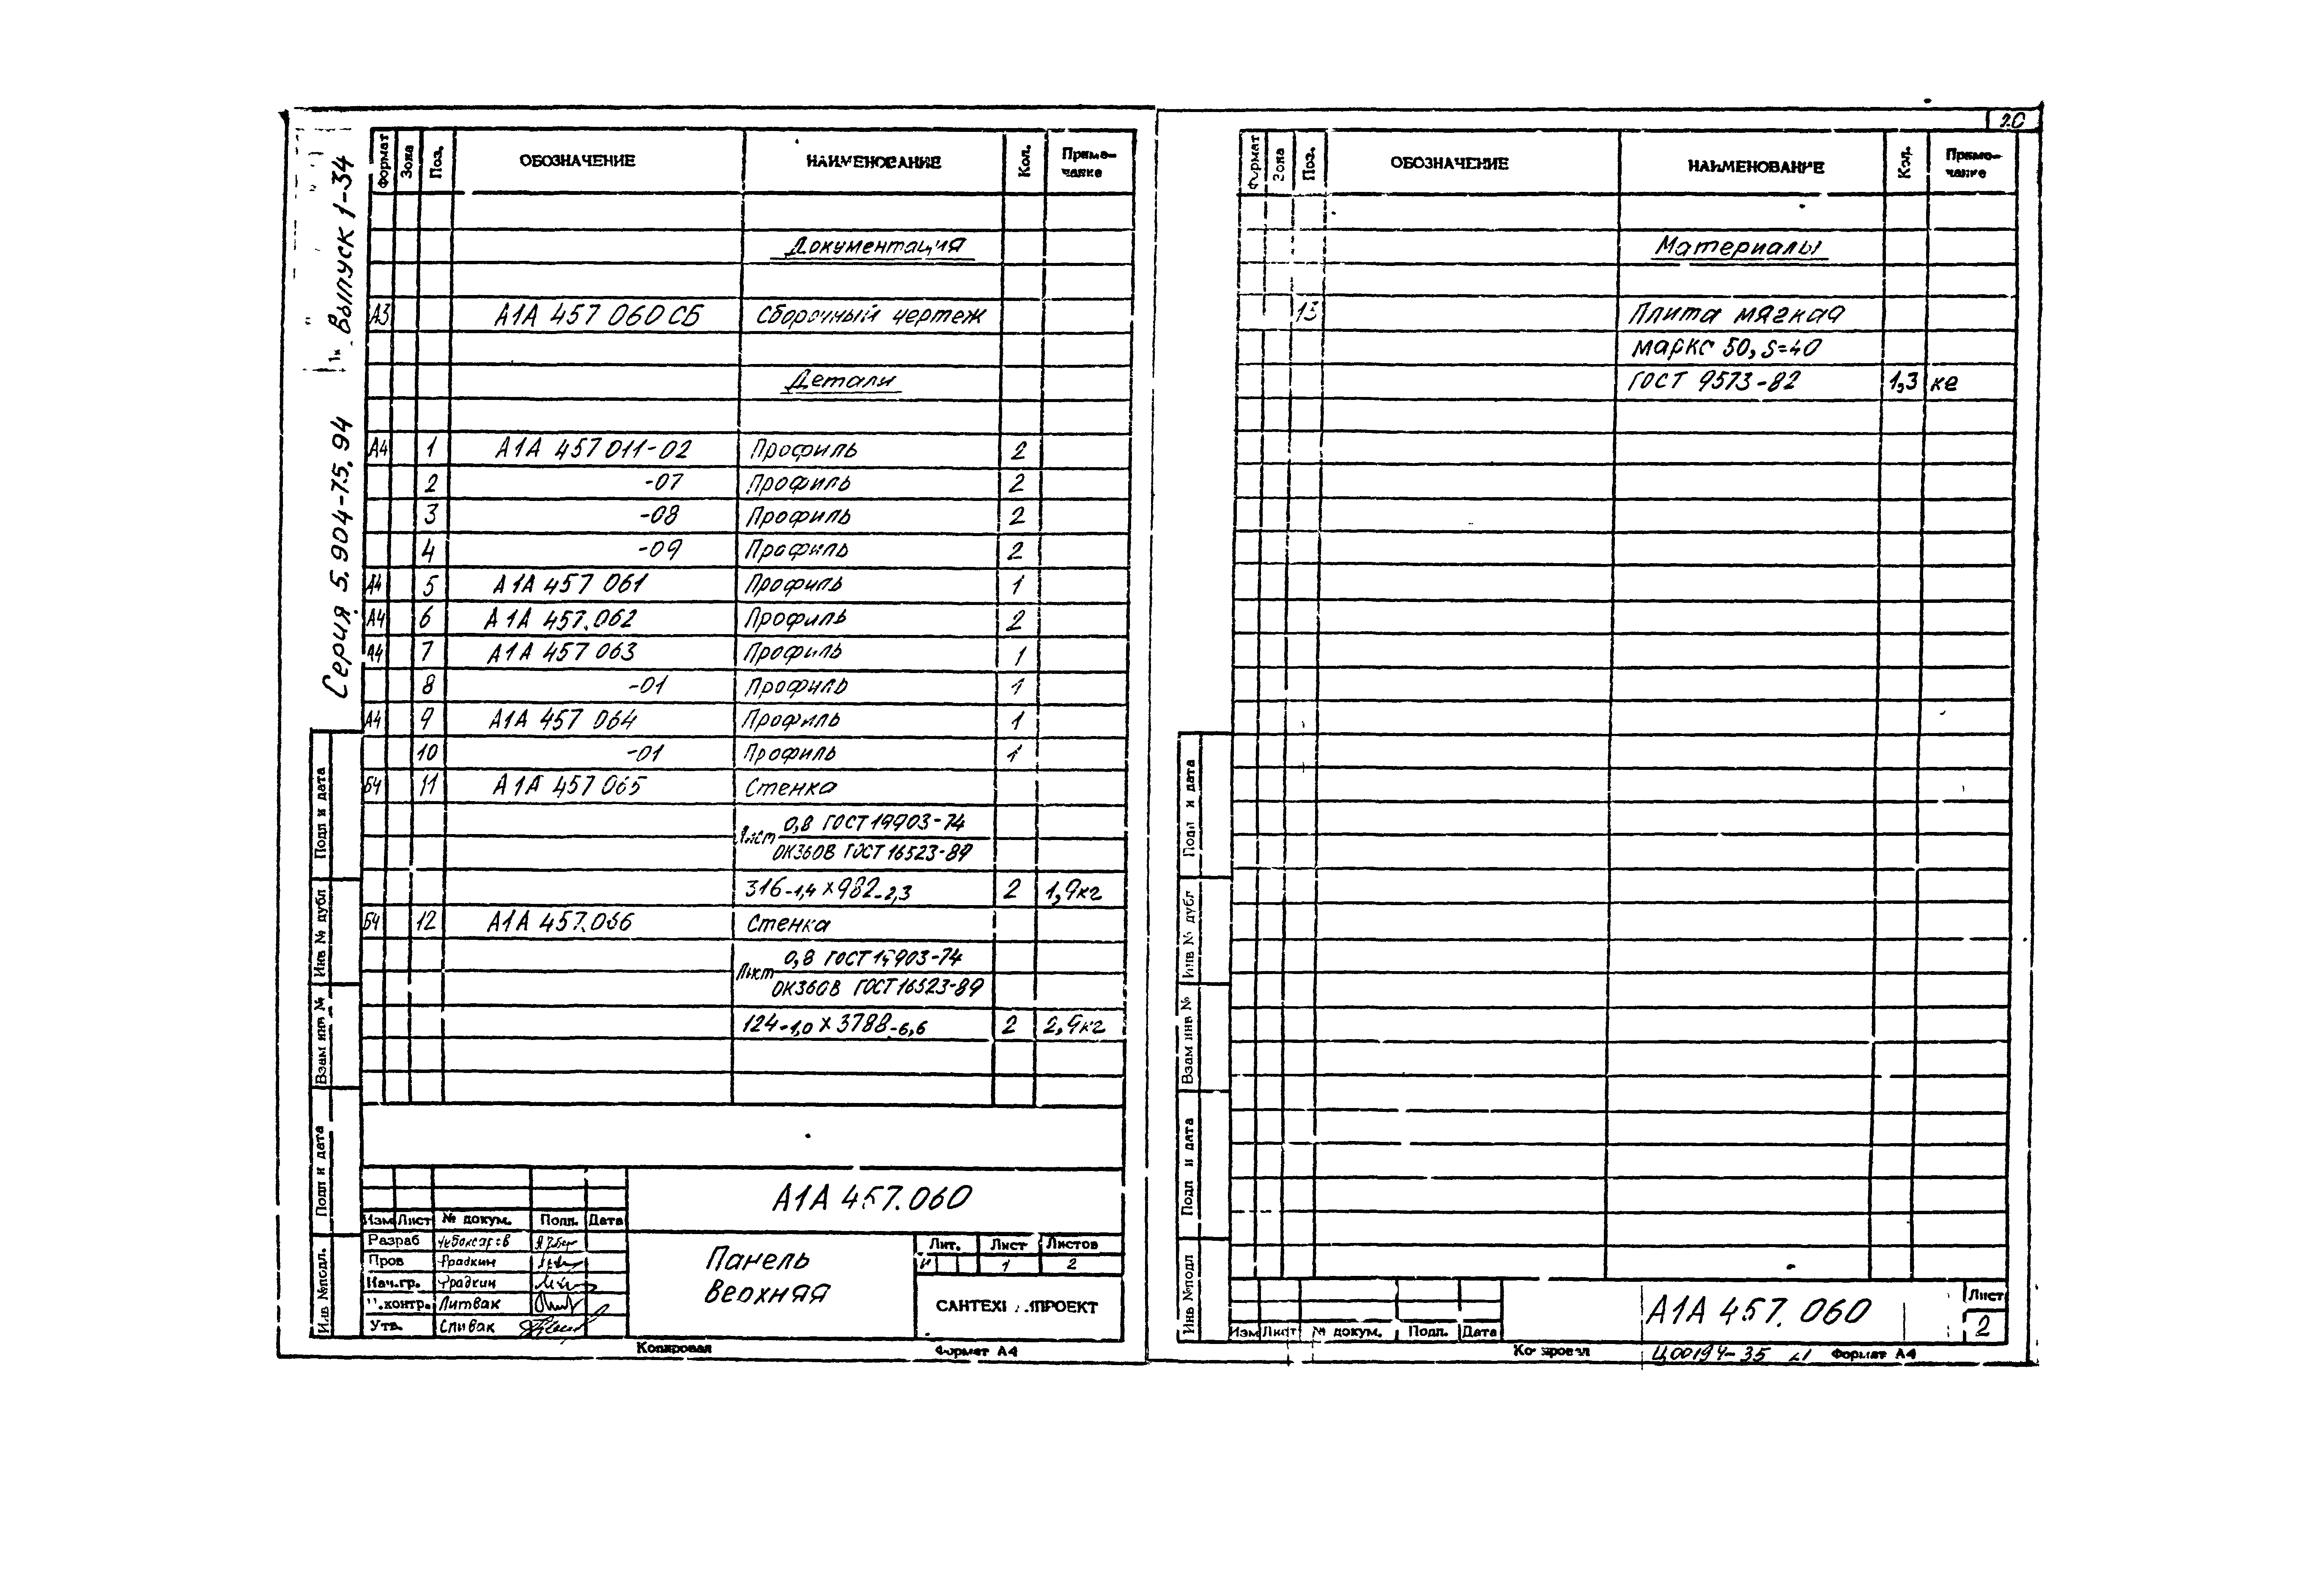 Серия 5.904-75.94 Выпуск 1-34
Формат Зона Поз. ОБОЗНАЧЕНИЕ НАИМЕНОВАНИЕ Кол. Приме-
чание
Документация
А3 А1А 457 060 СБ Сборочный чертеж
Детали
А4 1 А1А 457 011-02 Профиль 2
2 -07 Профиль 2
3 -08 Профиль 2
4 -09 Профиль 2
А4 5 А1А 457 061 Профиль 1
А4 6 А1А 457.062 Профиль 2
А4 7 А1А 457 063 Профиль 1
8 -01 Профиль 1
А4 9 А1А 457 064 Профиль 1
10 -01 Профиль 1
БЧ 11 А1А 457 065 Стенка
Лист 0,8 ГОСТ 19903-74
ОК360В ГОСТ 16523-89
316-1,4 х 982-2,3 2 1,9кг
БЧ 12 А1А 457.066 Стенка
Лист 0,8 ГОСТ 19903-74
ОК360В ГОСТ 16523-89
124-1,0 х 3788-6,6 2 2,9кг
Подп и дата
Инв № дубл
Взам инв №
Подп и дата
Инв №подл.
А1А 457.060
Изм Лист № докум. Подп. Дата
Разраб Чебоксаров
Пров Фрадкин
Нач.гр. Фрадкин
Н.контр. Литвак
Утв. Спивак
Панель
верхняя
Лит. Лист Листов
И 1 2
Копировал Формат А4
20
Формат Зона Поз. ОБОЗНАЧЕНИЕ НАИМЕНОВАНИЕ Кол. Приме-
чание
Материалы
13 Плита мягкая
марки 50, S=40
ГОСТ 9573-82 1,3 кг
Подп и дата
Инв № дубл
Взам инв №
Подп и дата
Инв №подл
Изм Лист № докум. Подп. Дата
А1А 457. 060
Лист
2
Копировал Ц00194-35 21 Формат А4